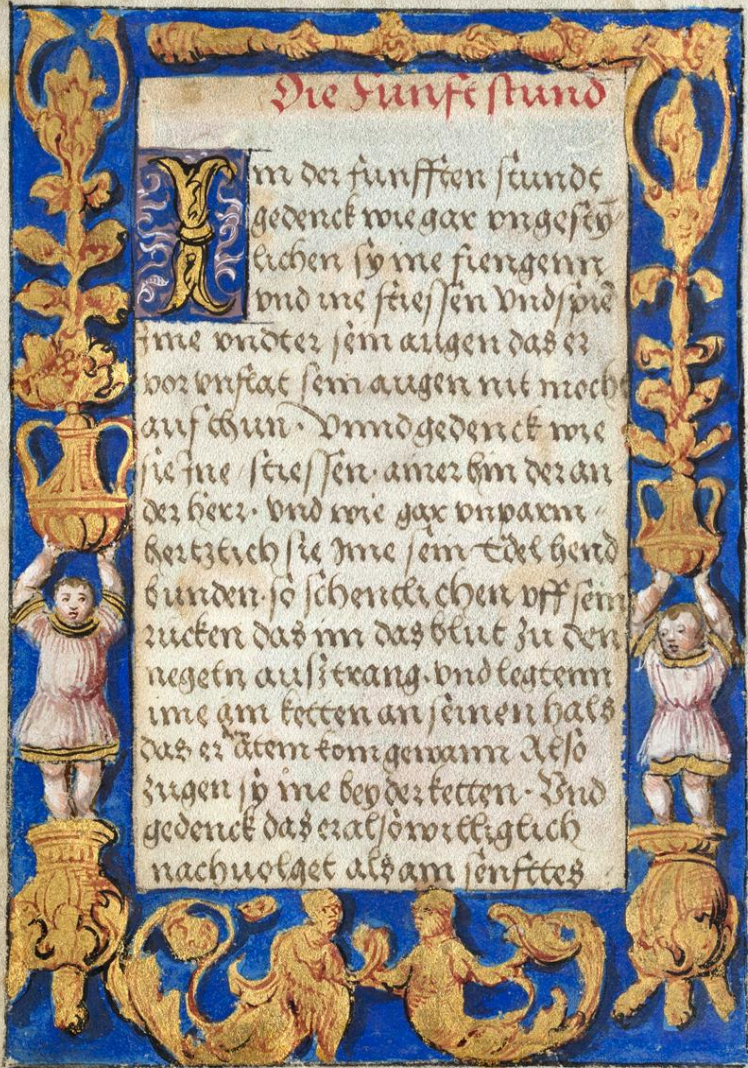 Die Funfft stund
In der funfften stundt
gedenck wie gar ungesty̅
lichen sy ine fiengenn
vnd ine stiessen vnd spie
ime vndter sein augen das er
vor vnflat sein augen nit mocht
auf thun. Vnnd gedenck wie
sie Ine stiessen. ainer hin der an
der herr. vnd wie gar vnparm-
hertzlich sie Ime sein Edel hend
bunden. so schentlichen vff sein
rucken das im das blut zu den
negeln ausz trang. vnd legtenn
ime ain ketten an seinen hals
das er atem kom gewann Also
zugen sy ine bey der ketten. Vnd
gedenck das er also williglich
nachuolget als ain senfftes